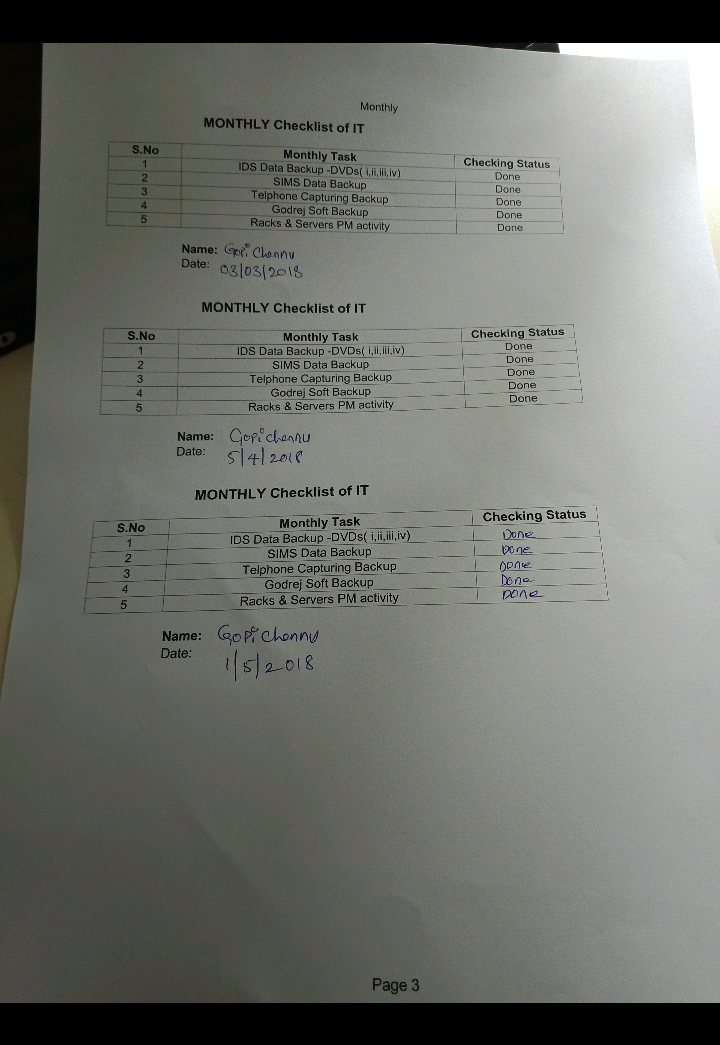 Monthly
MONTHLY Checklist of IT
S.No Monthly Task Checking Status
1 IDS Data Backup -DVDs( i,ii,iii,iv) Done
2 SIMS Data Backup Done
3 Telphone Capturing Backup Done
4 Godrej Soft Backup Done
5 Racks & Servers PM activity Done
Name: Gopi Chennu
Date: 03/03/2018
MONTHLY Checklist of IT
S.No Monthly Task Checking Status
1 IDS Data Backup -DVDs( i,ii,iii,iv) Done
2 SIMS Data Backup Done
3 Telphone Capturing Backup Done
4 Godrej Soft Backup Done
5 Racks & Servers PM activity Done
Name: Gopi chennu
Date: 5/4/2018
MONTHLY Checklist of IT
S.No Monthly Task Checking Status
1 IDS Data Backup -DVDs( i,ii,iii,iv) Done
2 SIMS Data Backup Done
3 Telphone Capturing Backup Done
4 Godrej Soft Backup Done
5 Racks & Servers PM activity Done
Name: Gopi Chennu
Date: 1/5/2018
Page 3